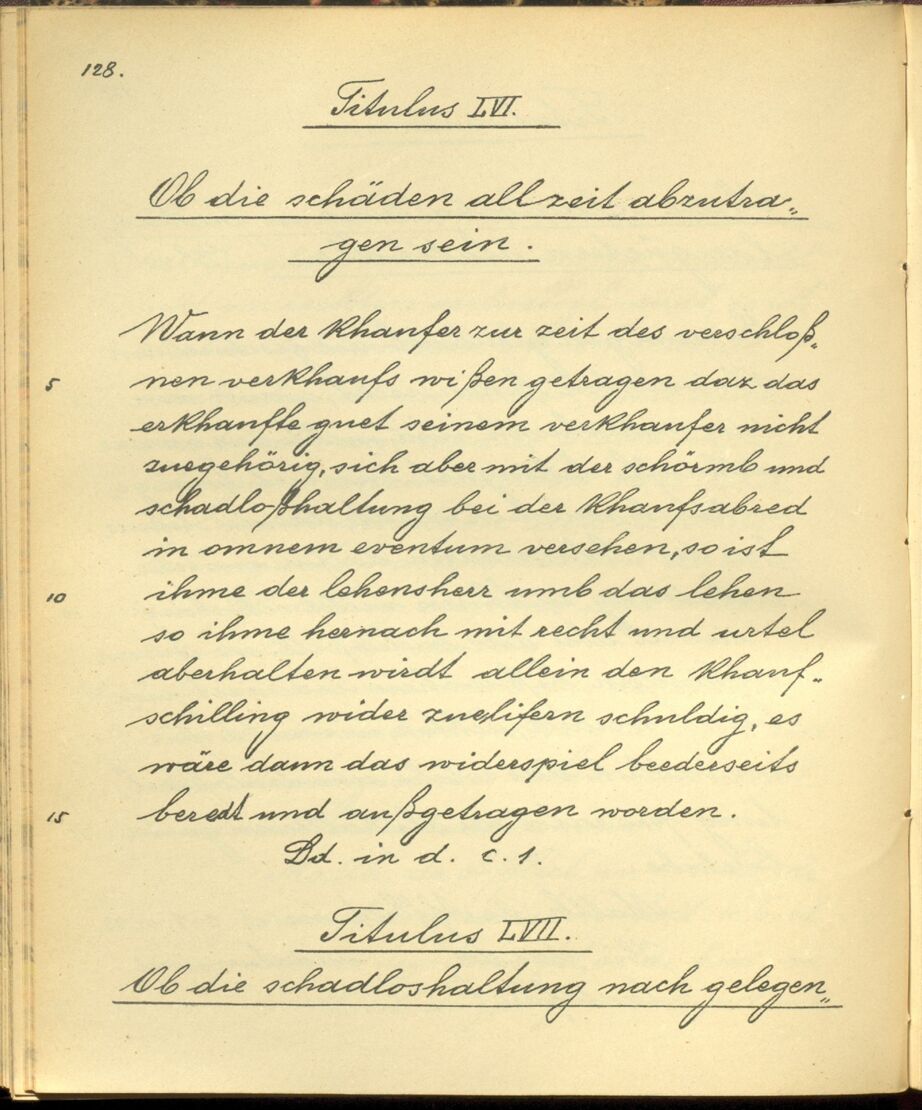 128.
Titulus LVI.
Ob die schäden allzeit abzutra„
gen sein.
Wann der khaufer zur zeit des verschloß„
5 nen verkhaufs wißen getragen daz das
erkhaufte guet seinem verkhaufer nicht
zuegehörig, sich aber mit der schörmb und
schadloßhaltung bei der khaufsabred
in omnem eventum versehen, so ist
10 ihme der lehensherr umb das lehen
so ihme hernach mit recht und urtel
aberhalten wirdt allein den khauf„
schilling wider zuelifern schuldig, es
wäre dann das widerspiel beederseits
15 beredt und außgetragen worden.
Bd. in d. c. 1.
Titulus LVII.
Ob die schadloshaltung nach gelegen„